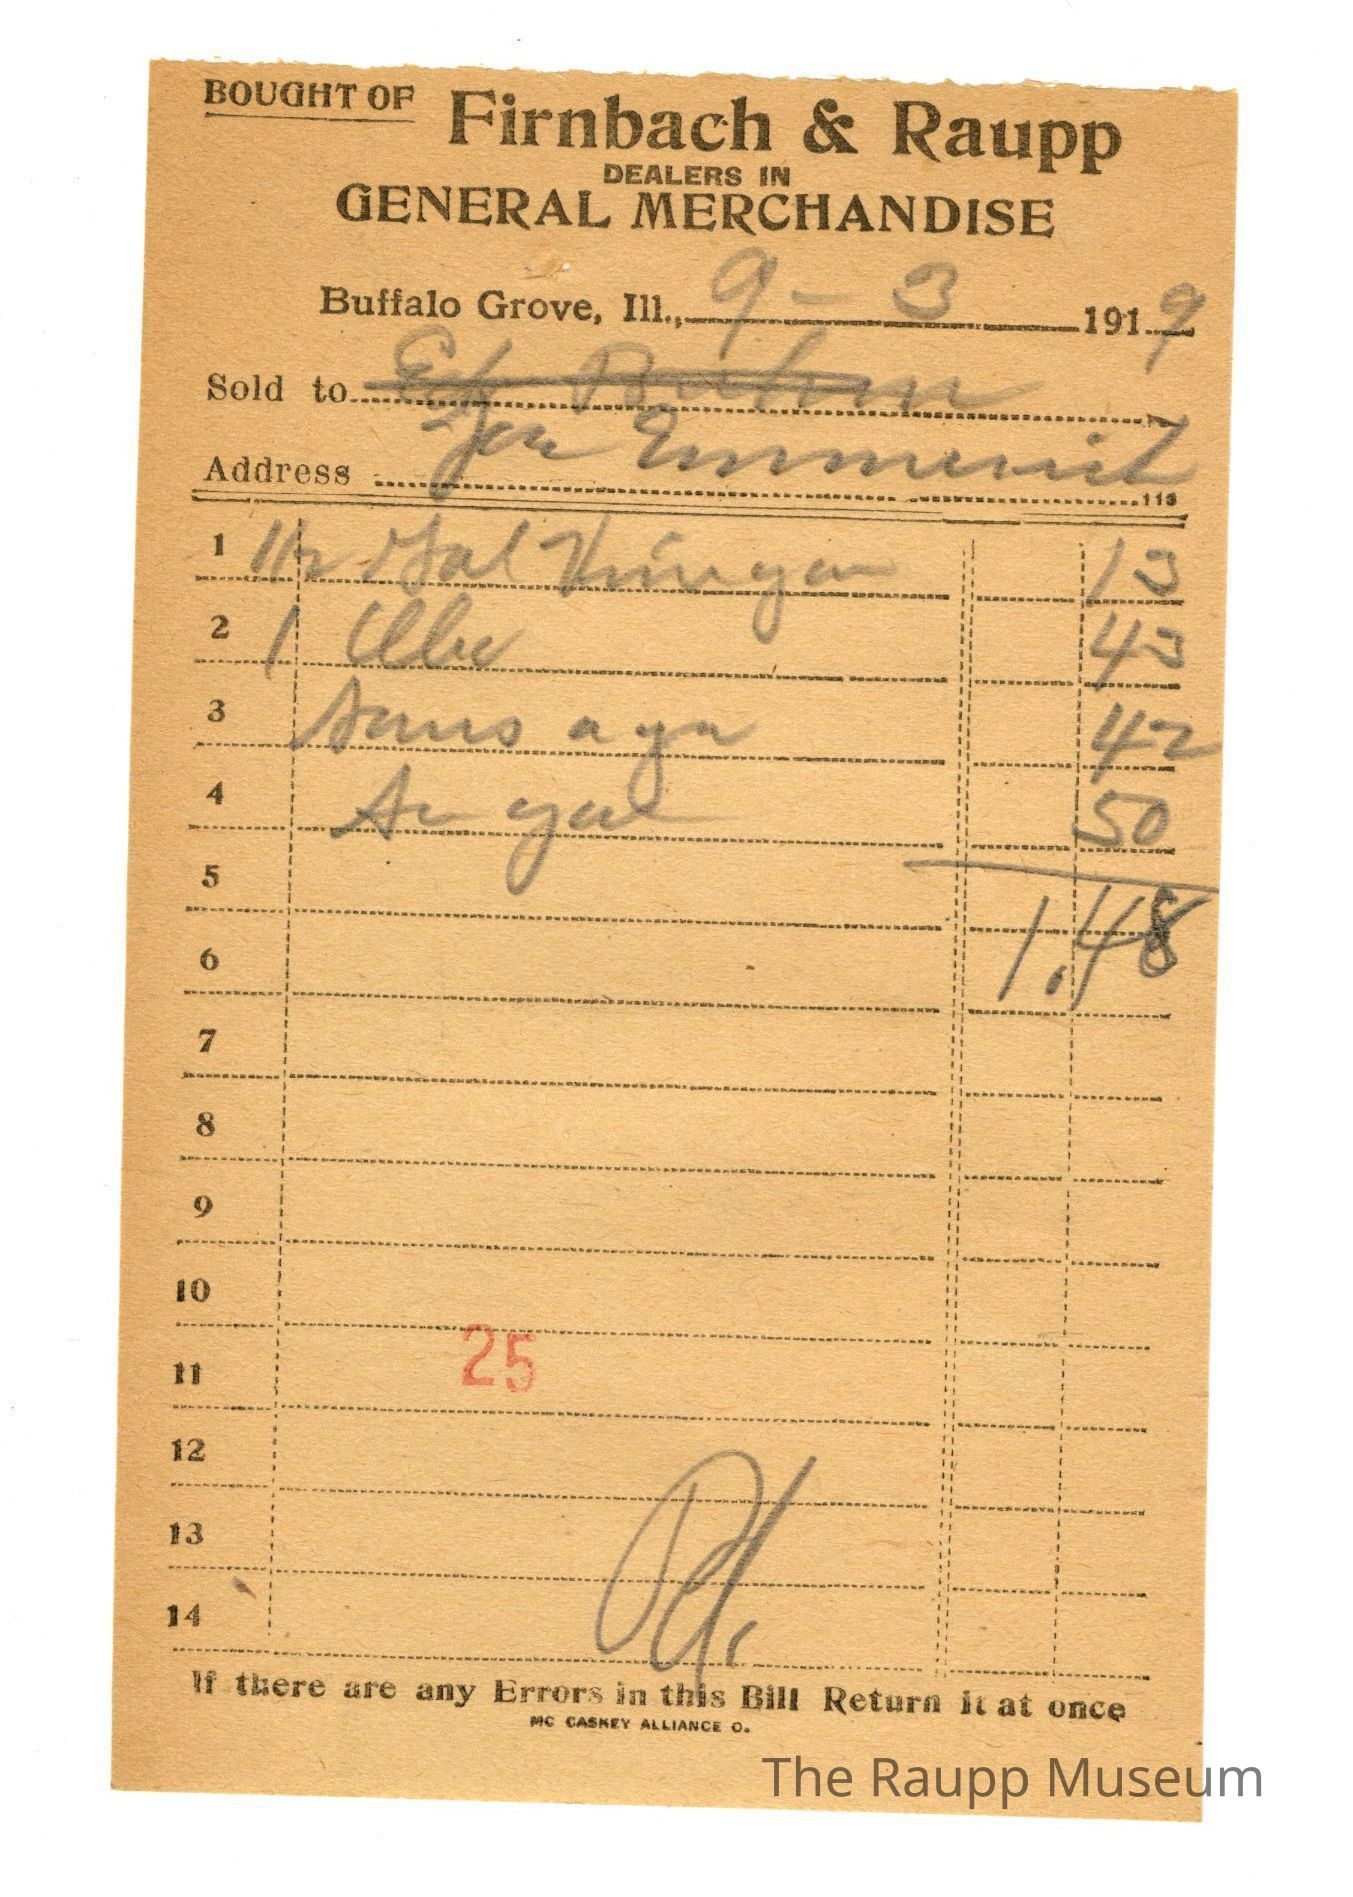 BOUGHT OF Firnbach & Raupp
DEALERS IN
GENERAL MERCHANDISE
Buffalo Grove, Ill., 9 - 3 1919
Sold to
Joe Emmerich
Address
113
1 Gal Vinegar 13
2 1 43
3 Sausage 42
4 Sugar 50
5
1.48
6
7
8
9
10
25
11
12
13
Pd.
14
If there are any Errors in this Bill Return it at once
MC CASKEY ALLIANCE O.
The Raupp Museum